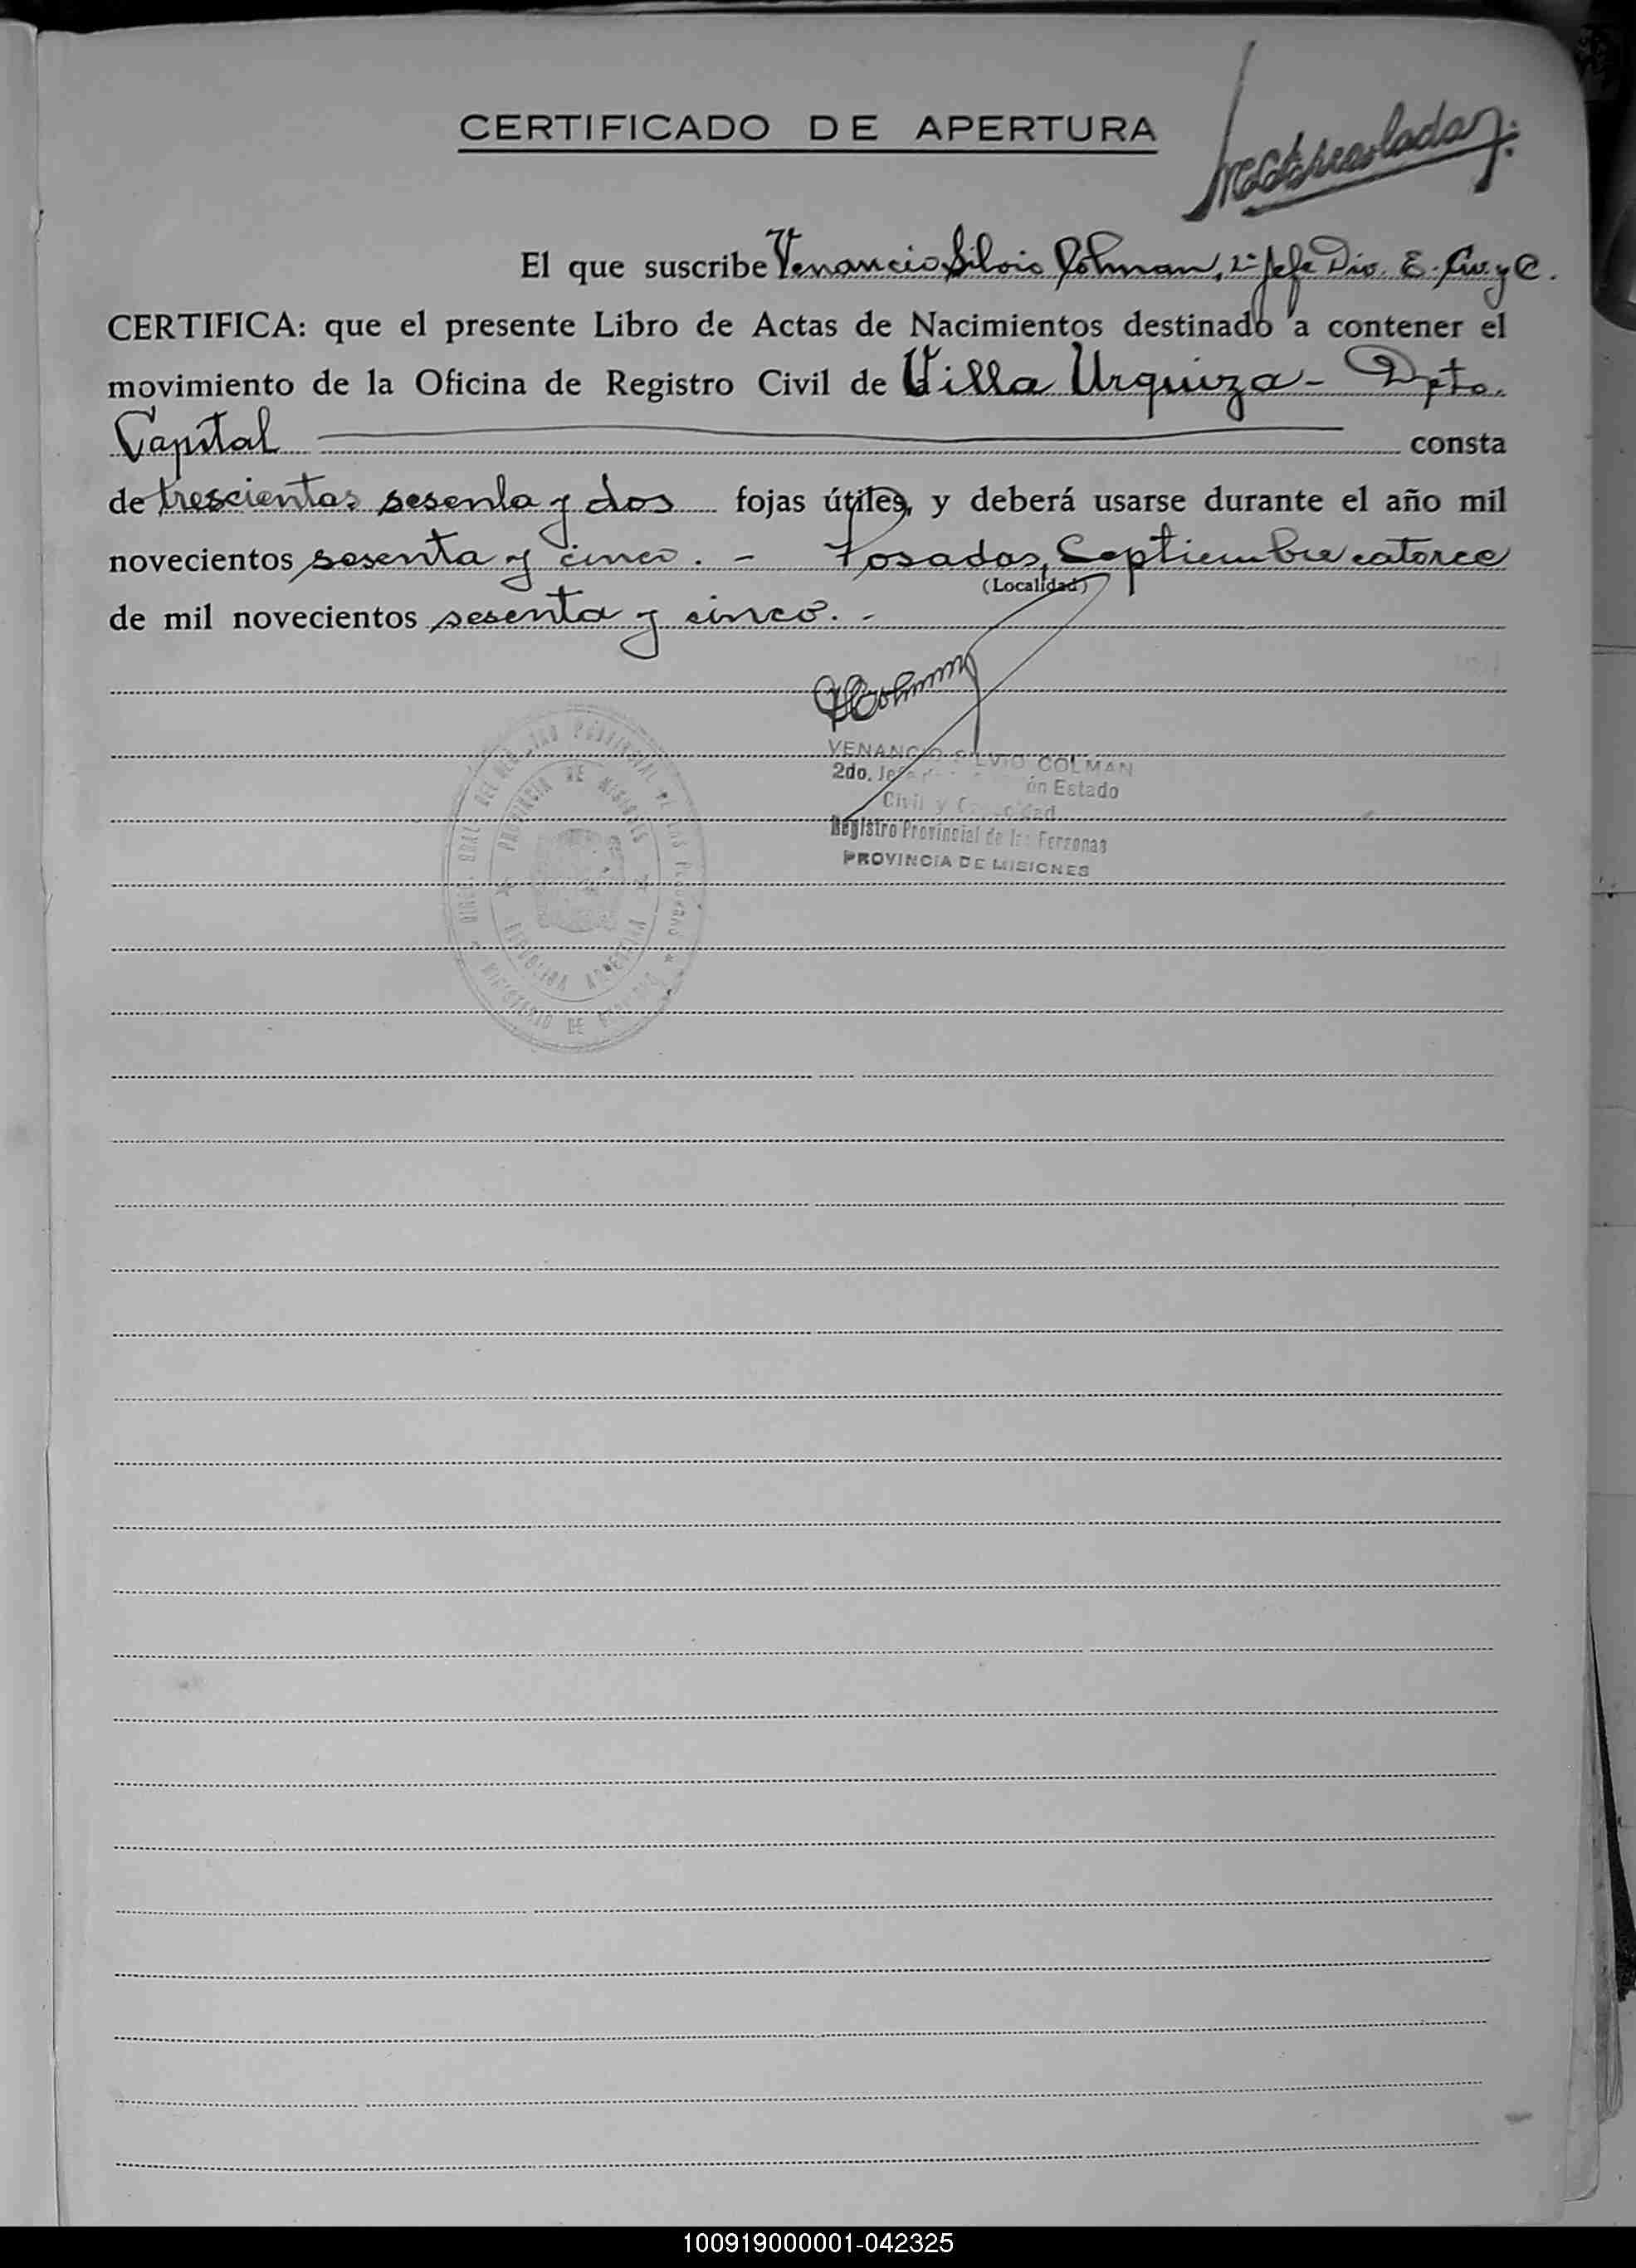 CERTIFICADO DE APERTURA
El que suscribe Venancio Silvio Colman, 2º Jefe Div. E. Civ. y C.
CERTIFICA: que el presente Libro de Actas de Nacimientos destinado a contener el
movimiento de la Oficina de Registro Civil de Villa Urquiza - Dpto.
Capital consta
de trescientas sesenta y dos fojas útiles, y deberá usarse durante el año mil
novecientos sesenta y cinco. - Posadas, Septiembre catorce
(Localidad)
de mil novecientos sesenta y cinco. -
VENANCIO SILVIO COLMAN
2do. Jefe Estado
Civil y Capacidad
Registro Provincial de las Personas
PROVINCIA DE MISIONES
DIREC. GRAL. DEL REGISTRO PROVINCIAL DE LAS PERSONAS
MINISTERIO DE GOBIERNO
PROVINCIA DE MISIONES
REPUBLICA ARGENTINA
100919000001-042325